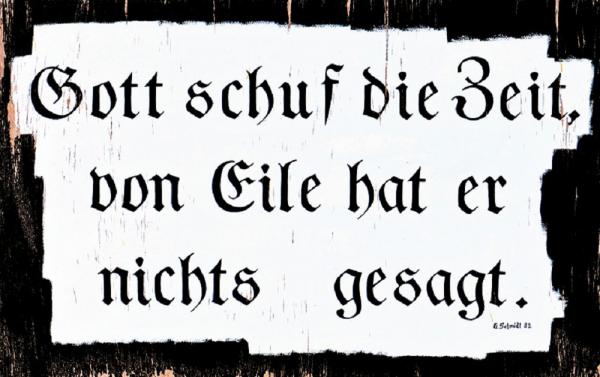 Gott schuf die Zeit,
von Eile hat er
nichts gesagt.
G. Schmidt 82